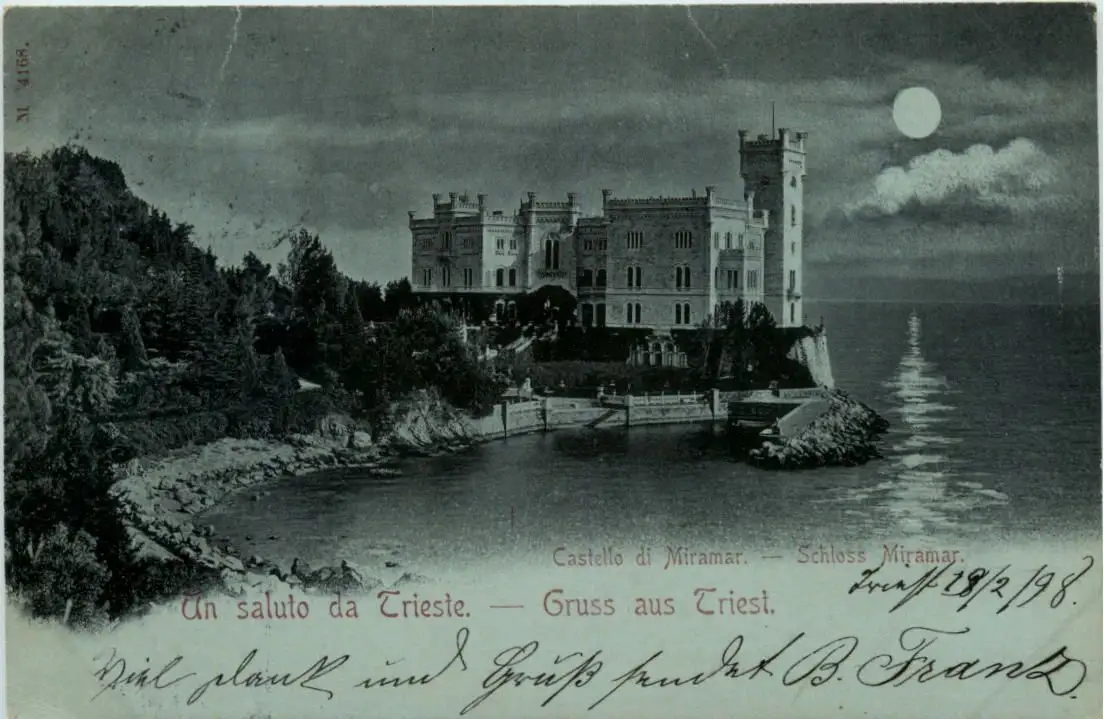 M. 4168.
Castello di Miramar. — Schloss Miramar.
Triest 18/2/98.
Un saluto da Trieste. — Gruss aus Triest.
Viel Dank und Grüß sendet B. Franz